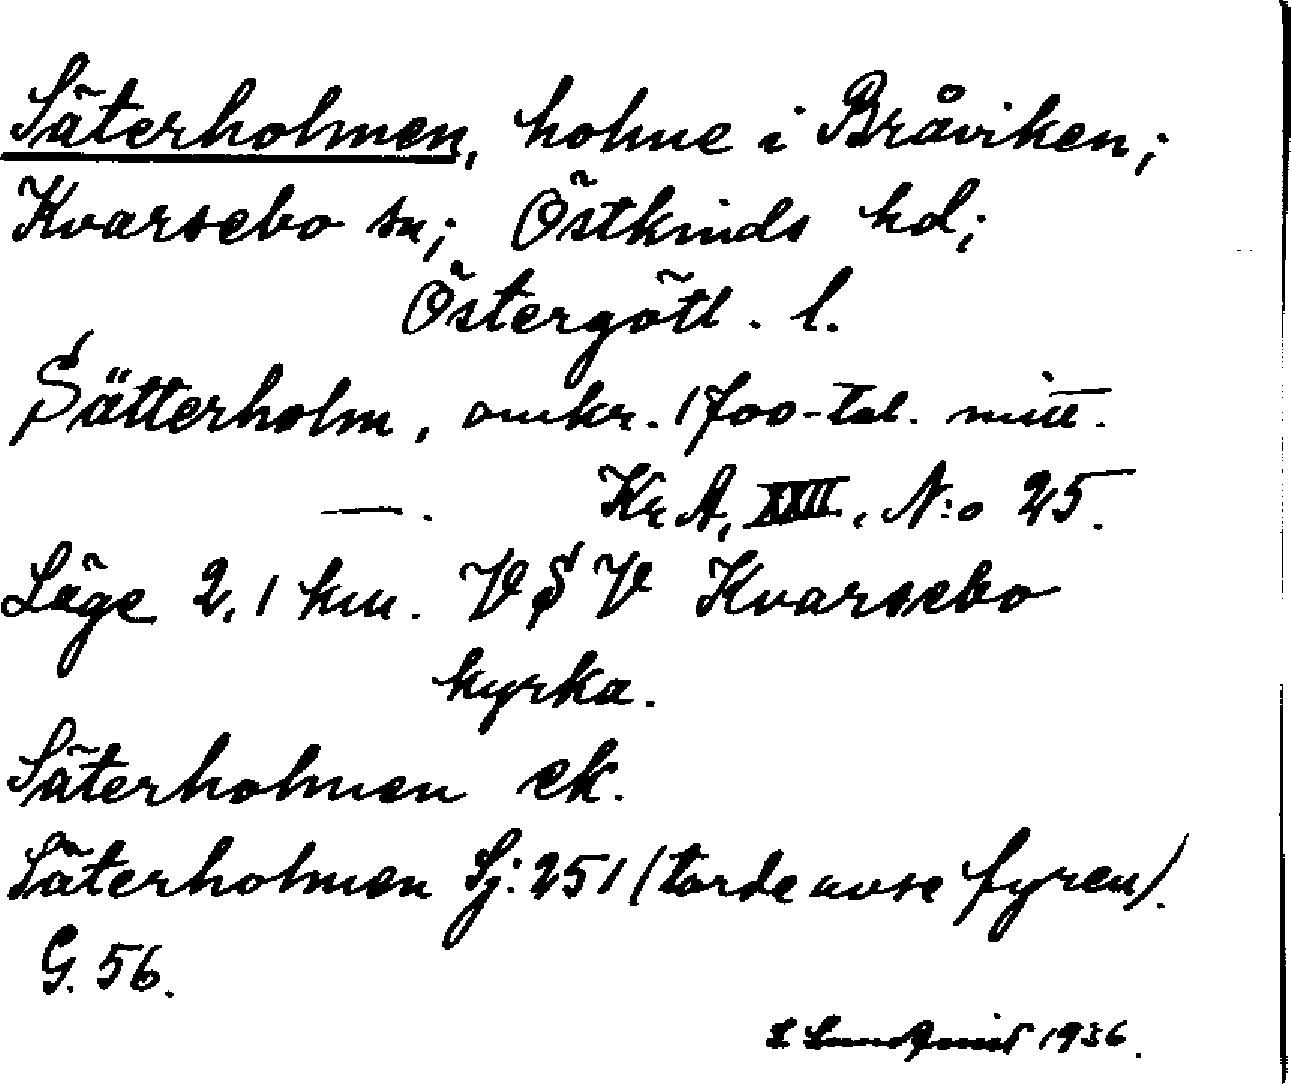 Säterholmen, holme i Bråviken;
Kvarsebo sn; Östkinds hd;
Östergötl. l.
Sätterholm, omkr. 1700-tal. mitt.
—. Kr A, XXII, N:o 25.
Läge 2,1 km. V S V Kvarsebo
kyrka.
Säterholmen ek.
Säterholmen Sj: 251 (torde avse fyren).
G. 56.
S Lundqvist 1936.